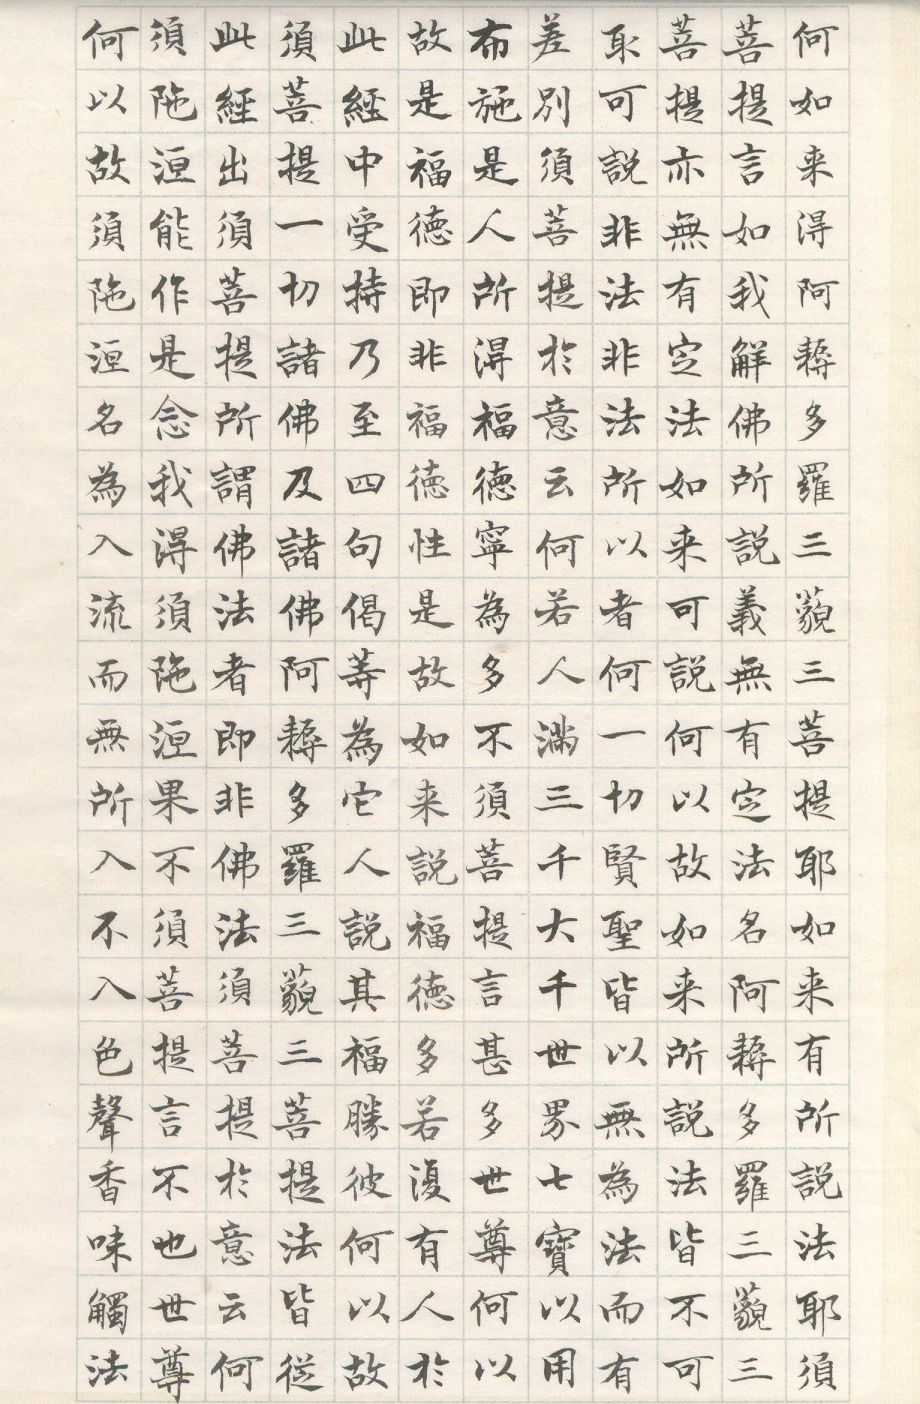 何如来得阿耨多羅三藐三菩提耶如来有所説法耶須
菩提言如我解佛所説義無有定法名阿耨多羅三藐三
菩提亦無有定法如来可説何以故如来所説法皆不可
取可説非法非非法所以者何一切賢聖皆以無為法而有
差別須菩提於意云何若人滿三千大千世界七寶以用
布施是人所得福德寧為多不須菩提言甚多世尊何以
故是福德即非福德性是故如来説福德多若復有人於
此經中受持乃至四句偈等為它人説其福勝彼何以故
須菩提一切諸佛及諸佛阿耨多羅三藐三菩提法皆從
此經出須菩提所謂佛法者即非佛法須菩提於意云何
須陁洹能作是念我得須陁洹果不須菩提言不也世尊
何以故須陁洹名為入流而無所入不入色聲香味觸法